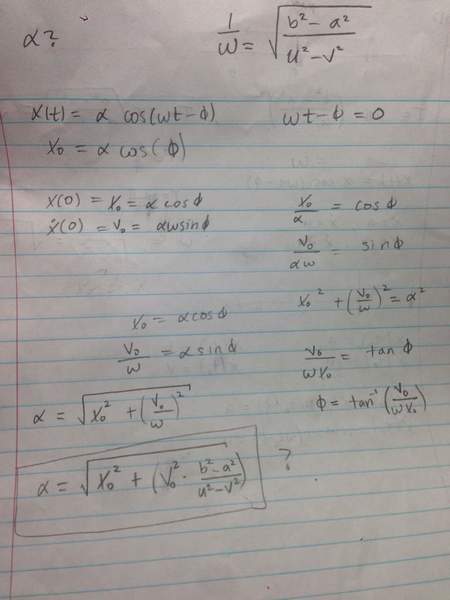 α?
1/ω = √((b² - a²)/(u² - v²))
x(t) = α cos(ωt - ϕ)
ωt - ϕ = 0
x₀ = α cos(ϕ)
x(0) = x₀ = α cosϕ
ẋ(0) = v₀ = αω sinϕ
x₀/α = cosϕ
v₀/(αω) = sinϕ
x₀² + (v₀/ω)² = α²
x₀ = α cosϕ
v₀/ω = α sinϕ
v₀/(ωx₀) = tanϕ
α = √(x₀² + (v₀/ω)²)
ϕ = tan⁻¹(v₀/(ωx₀))
α = √(x₀² + (v₀² · (b² - a²)/(u² - v²))) ?